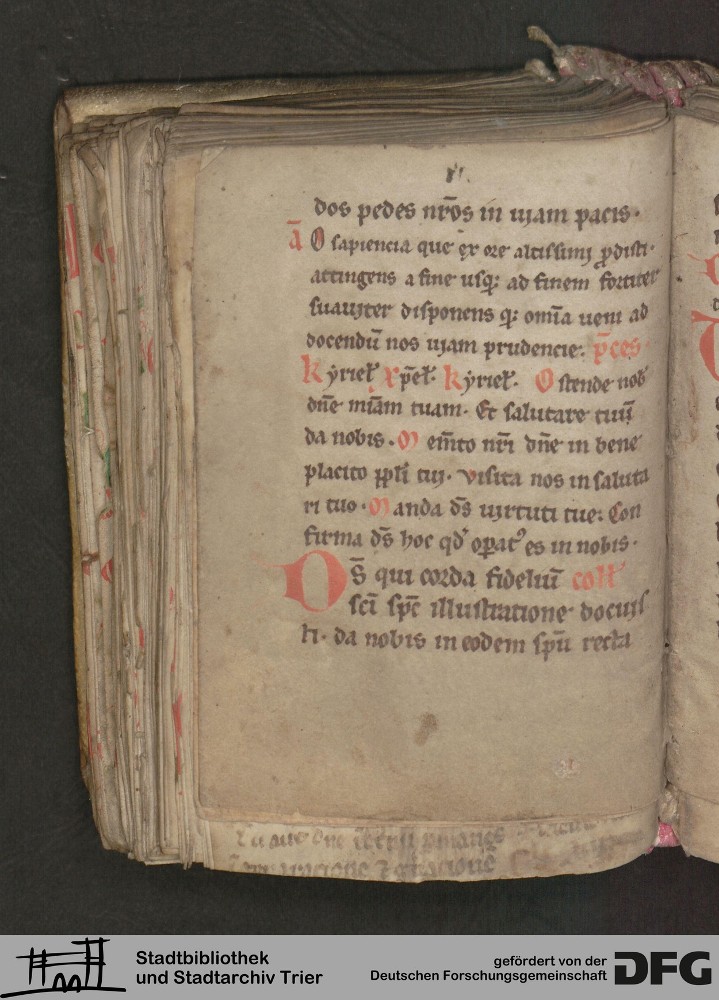 dos pedes nr̄os in uiam pacis·
ā O sapiencia que ex ore altissimi ꝓdisti·
attingens a fine usqꝫ ad finem fortiter
suauiter disponens qꝫ om̄ia ueni ad
docendū nos uiam prudencie: p̄ces
kyriel' xp̄el'· kyriel'· Ostende nob'
dn̄e mīam tuam· Et salutare tuū
da nobis· Mem̄to nr̄i dn̄e in bene
placito pp̄li tui· visita nos in saluta
ri tuo· Manda ds̄ uirtuti tue: Con
firma ds̄ hoc qd' oꝑat' es in nobis·
Ds̄ qui corda fideliū coll'
sc̄i sp̄c illustratione docuis
ti· da nobis in eodem sp̄u recta
Stadtbibliothek
und Stadtarchiv Trier
gefördert von der
Deutschen Forschungsgemeinschaft
DFG